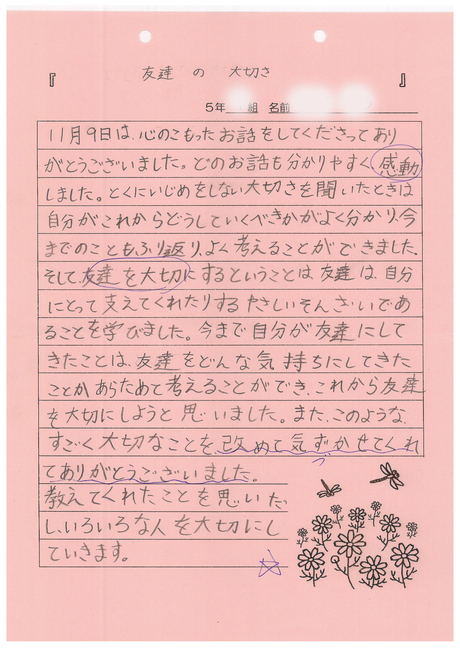 『 友達 の 大切さ 』
5年 組 名前
11月9日は、心のこもったお話をしてくださってあり
がとうございました。どのお話も分かりやすく感動
しました。とくにいじめをしない大切さを聞いたときは
自分がこれからどうしていくべきかがよく分かり、今
までのこともふり返り、よく考えることができました。
そして友達を大切にするということは友達は、自分
にとって支えてくれたりするたさしいそんざいであ
ることを学びました。今まで自分が友達にして
きたことは、友達をどんな気持ちにしてきた
ことかあらためて考えることができ、これから友達
を大切にしようと思いました。また、このような、
すごく大切なことを、改めて気ずかせてくれ
づ
てありがとうございました。
教えてくれたことを思いだ
し、いろいろな人を大切にし
ていきます。